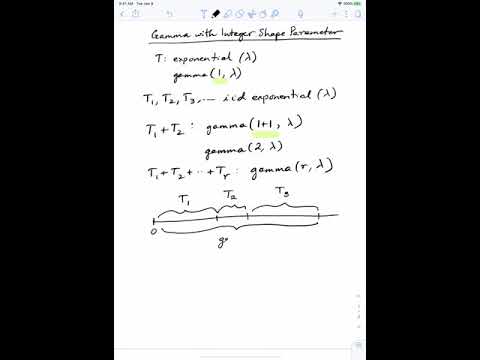 9:41 AM Tue Jan 8
Gamma with Integer Shape Parameter
T: exponential (λ)
gamma (1, λ)
T₁, T₂, T₃, .... iid exponential (λ)
T₁ + T₂ : gamma (1+1, λ)
gamma (2, λ)
T₁ + T₂ + ... + Tᵣ : gamma (r, λ)
T₁ T₂ T₃
0
g